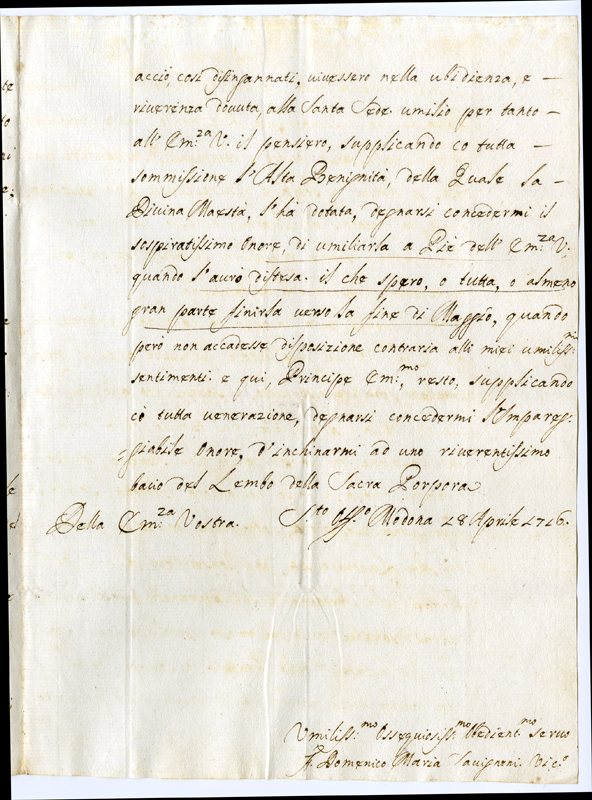 acciò, così disingannati, vivessero nella ubidienza, e –
riverenza dovuta, alla Santa Sede. umilio per tanto –
all' Em.za V. il pensiero, supplicando cõ tutta –
sommissione l'Alta Benignità, della Quale la –
Divina Maestà, l'hà dotata, degnarsi concedermi il
sospiratissimo Onore, di umiliarla a Piè dell' Em.za V;
quando l'aurò distesa. il che spero, o tutta, o almeno
gran parte finirla verso la fine di Maggio, quando
però non accadesse disposizione contraria alli miei umiliss.mi
sentimenti. e qui, Principe Em.mo, resto, supplicando
cõ tutta venerazione, degnarsi concedermi l'Impareg:
=giabile Onore, d'inchinarmi ad uno riverentissimo
bacio del Lembo della Sacra Porpora
Della Em.za Vostra. S.to Off.o Modona 28 Aprile 1716.
Umiliss.mo Ossequiosiss.mo Obedient.mo servo
F. Domenico Maria Savignoni. Vic.o